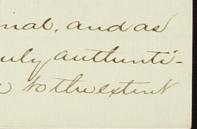 nal, and as
uly authenti-
to the extent